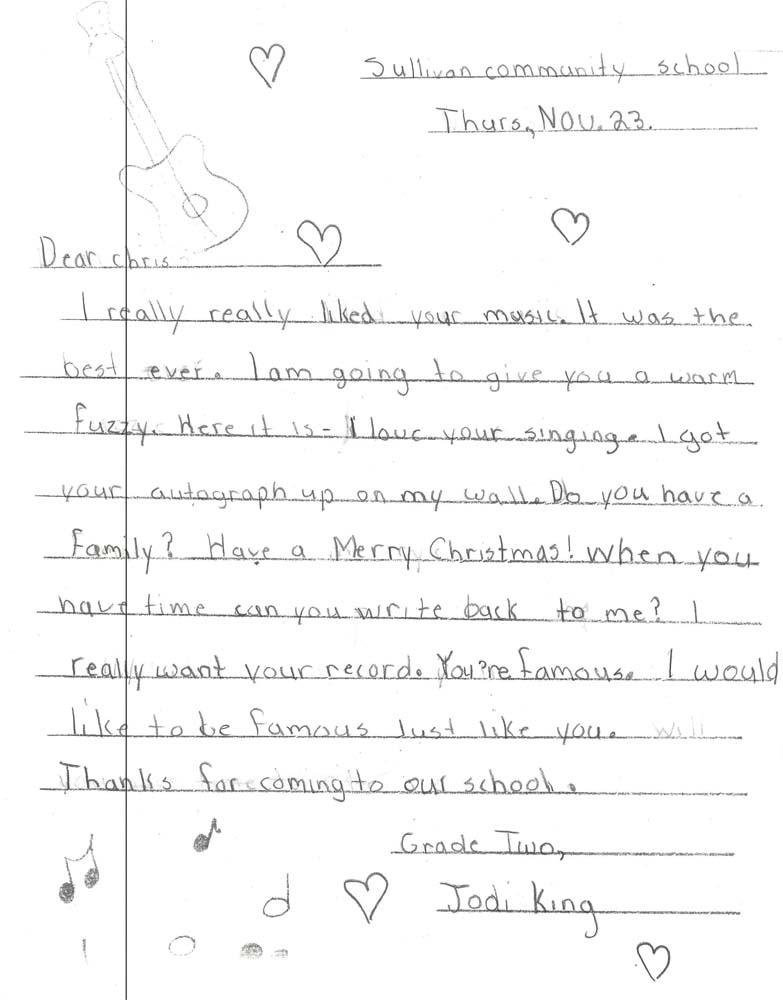 Sullivan community school
Thurs, Nov. 23.
Dear chris
I really really liked your music. It was the
best ever. I am going to give you a warm
fuzzy. Here it is - I love your singing. I got
your autograph up on my wall. Do you have a
family? Have a Merry Christmas! When you
have time can you write back to me? I
really want your record. You're famous. I would
like to be famous Just like you. Will
Thanks for coming to our school.
Grade Two,
Jodi King